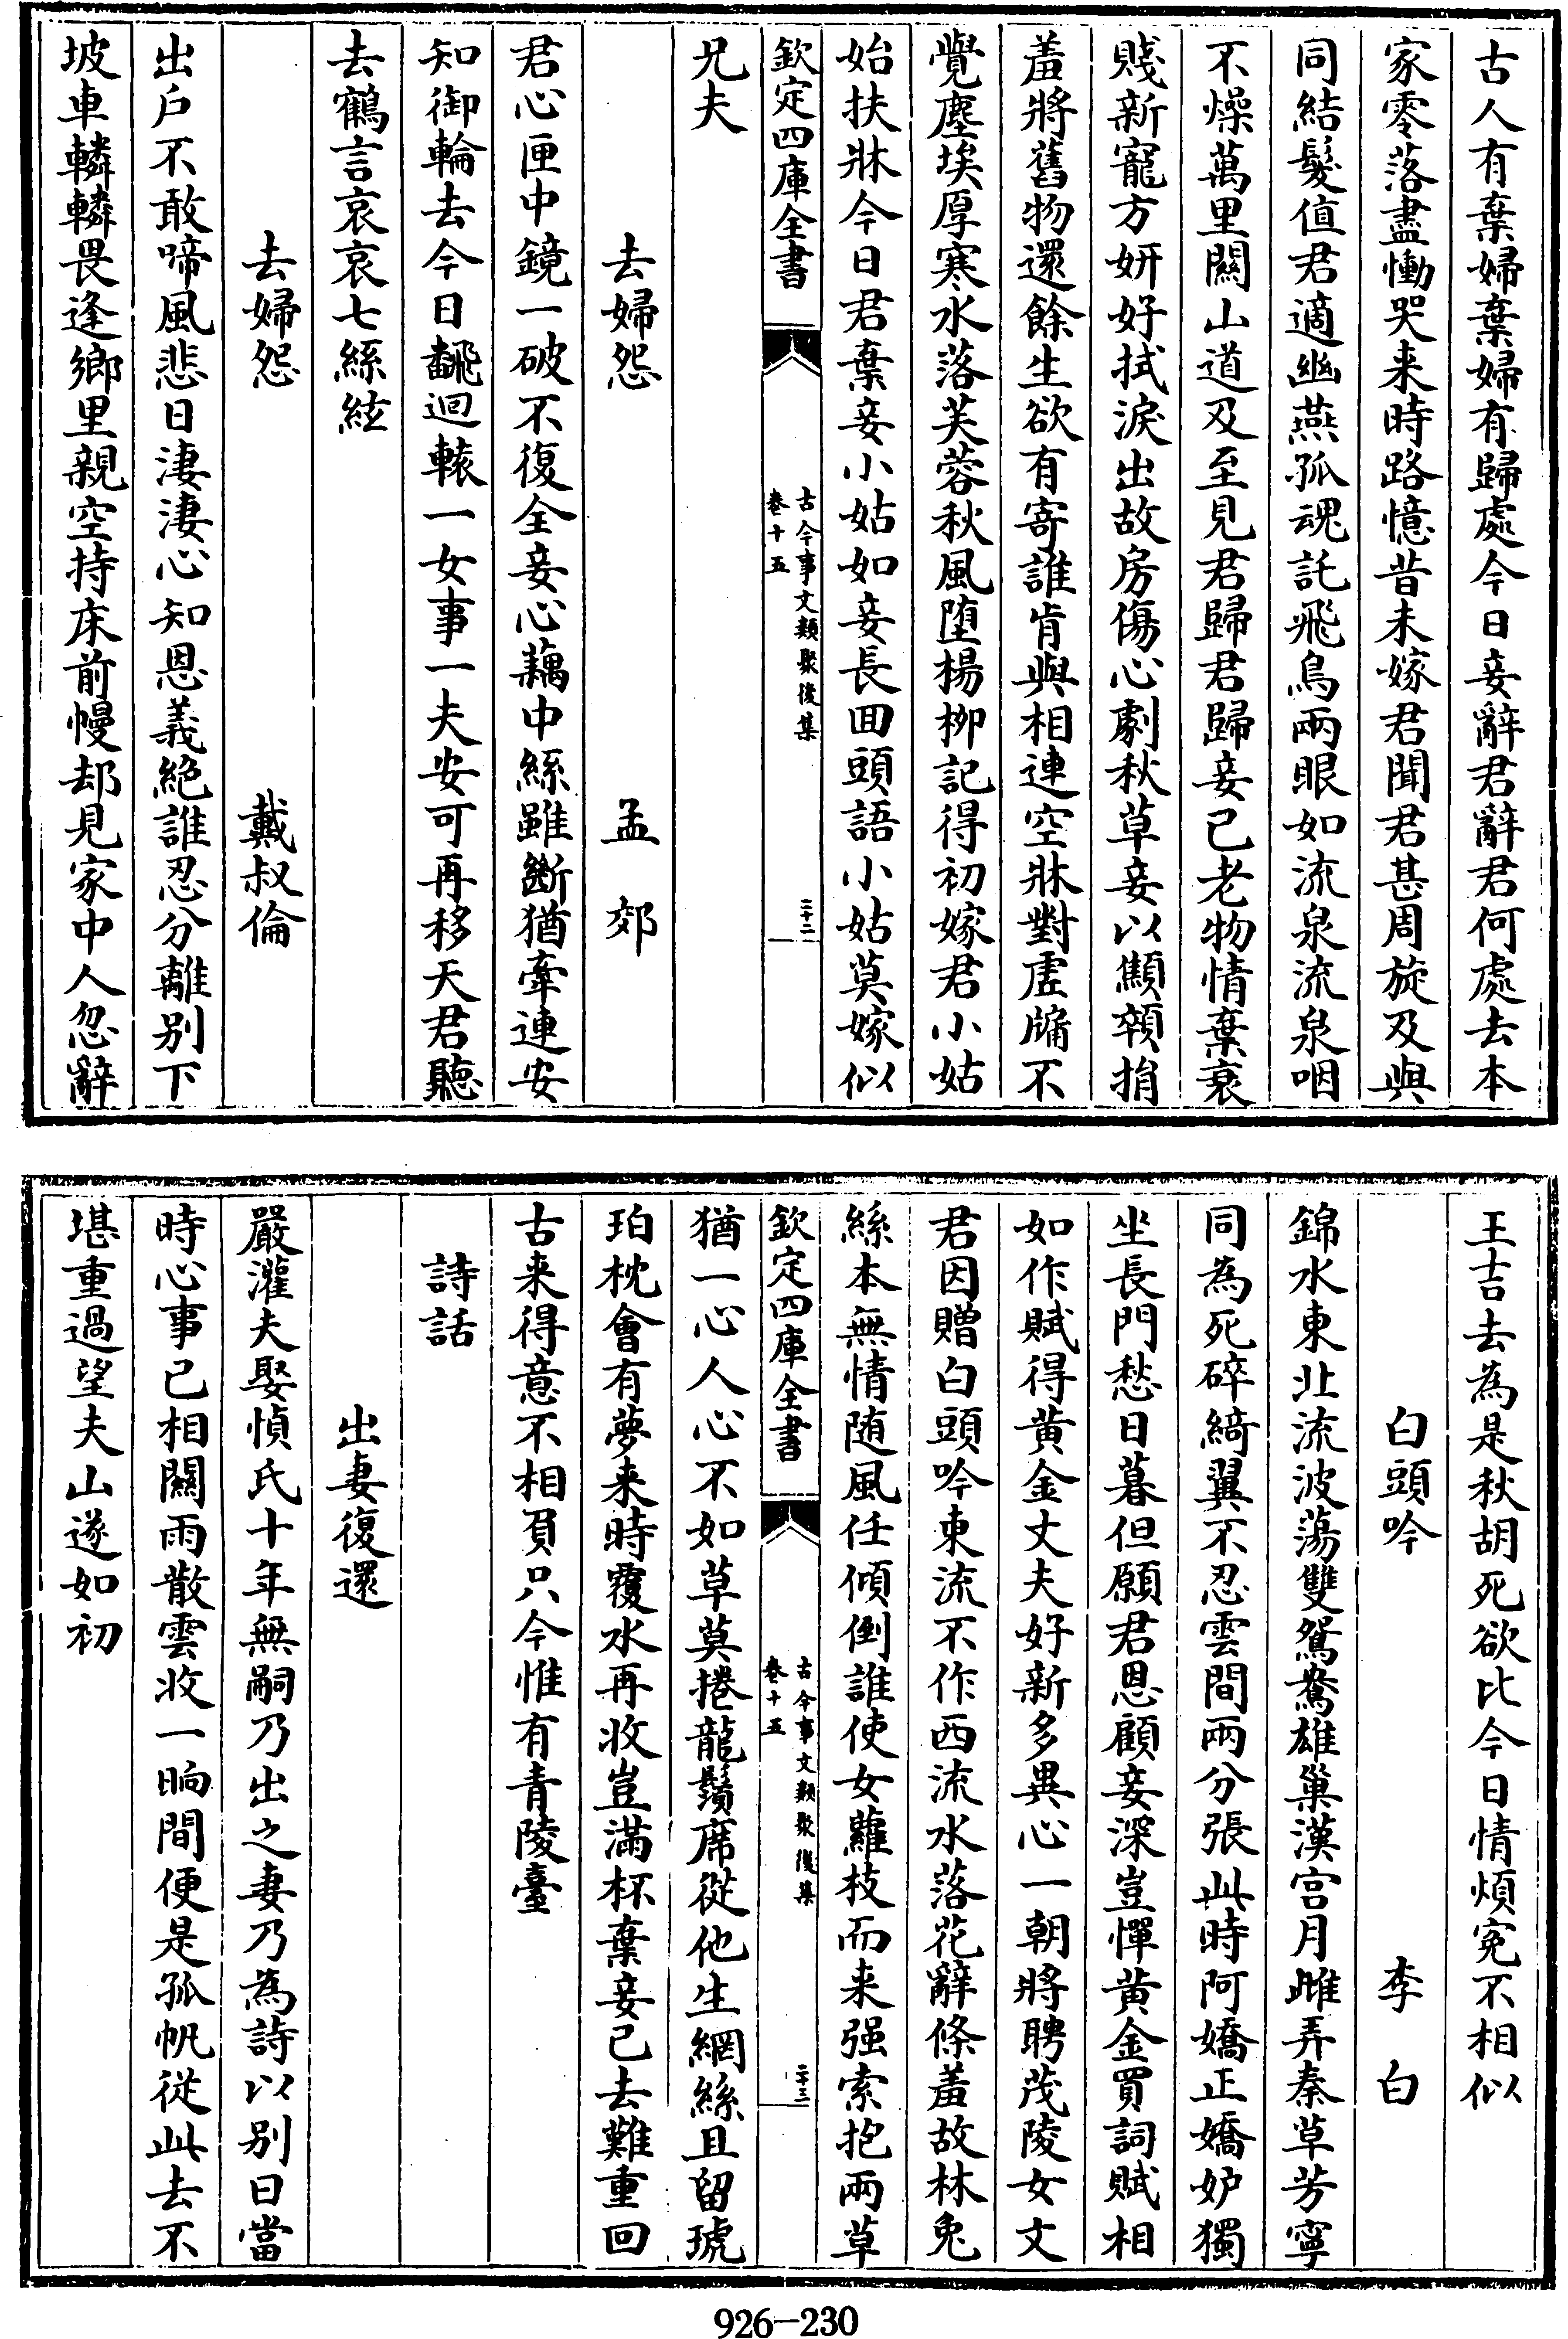 古人有棄婦棄婦有歸處今日妾辭君辭君何處去本
家零落盡慟哭来時路憶昔未嫁君聞君甚周旋及與
同結髮值君適幽燕孤魂託飛鳥兩眼如流泉流泉咽
不燥萬里關山道及至見君歸君歸妾已老物情棄衰
賤新寵方妍好拭淚出故房傷心劇秋草妾以顦顇捐
羞將舊物還餘生欲有寄誰肯與相連空牀對虛牖不
覺塵埃厚寒水落芙蓉秋風堕楊柳記得初嫁君小姑
始扶牀今日君棄妾小姑如妾長回頭語小姑莫嫁似
欽定四庫全書
古今事文類聚後集
卷十五
二十二
兄夫
去婦怨 孟郊
君心匣中鏡一破不復全妾心藕中絲雖斷猶牽連安
知御輪去今日飜迴轅一女事一夫安可再移天君聽
去鶴言哀哀七絲絃
去婦怨 戴叔倫
出戶不敢啼風悲日淒淒心知恩義絶誰忍分離别下
坡車轔轔畏逢鄉里親空持床前幔却見家中人忽辭
王吉去為是秋胡死欲比今日情煩寃不相似
白頭吟 李白
錦水東北流波蕩雙鴛鴦雄巢漢宫月雌弄秦草芳寧
同為死碎綺翼不忍雲間兩分張此時阿嬌正嬌妒獨
坐長門愁日暮但願君恩顧妾深豈憚黄金買詞賦相
如作賦得黄金丈夫好新多異心一朝將聘茂陵女文
君因贈白頭吟東流不作西流水落花辭條羞故林兔
絲本無情随風任傾倒誰使女蘿枝而来强索抱兩草
欽定四庫全書
古今事文類聚後集
卷十五
二十三
猶一心人心不如草莫捲龍鬚席從他生網絲且留琥
珀枕會有夢来時覆水再收豈滿杯棄妾已去難重回
古来得意不相負只今惟有青陵臺
詩話
出妻復還
嚴灌夫娶慎氏十年無嗣乃出之妻乃為詩以别曰當
時心事已相關雨散雲收一晌間便是孤帆從此去不
堪重過望夫山遂如初
926-230